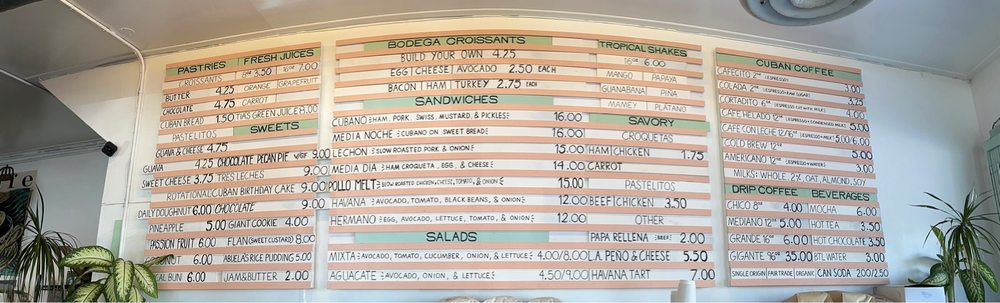 PASTRIES
CROISSANTS
BUTTER 4.25
CHOCOLATE 4.75
CUBAN BREAD 1.50
PASTELITOS
GUAVA & CHEESE 4.75
GUAVA 4.25
SWEET CHEESE 3.75
ROTATIONAL
DAILY DOUGHNUT 6.00
PINEAPPLE 5.00
PASSION FRUIT 6.00
NUT 6.00
CAL BUN 6.00
FRESH JUICES
8oz 3.50 16oz 7.00
ORANGE GRAPEFRUIT
CARROT
TIAS GREEN JUICE 8.00
SWEETS
CHOCOLATE PECAN PIE 9.00
TRES LECHES 9.00
CUBAN BIRTHDAY CAKE 9.00
CHOCOLATE 9.00
GIANT COOKIE 4.00
FLAN (SWEET CUSTARD) 8.00
ABUELA'S RICE PUDDING 5.00
JAM & BUTTER 2.00
BODEGA CROISSANTS
BUILD YOUR OWN 4.25
EGG | CHEESE | AVOCADO 2.50 EACH
BACON | HAM | TURKEY 2.75 EACH
SANDWICHES
CUBANO HAM, PORK, SWISS, MUSTARD, & PICKLES 16.00
MEDIA NOCHE CUBANO ON SWEET BREAD 16.00
LECHON SLOW ROASTED PORK & ONION 15.00
MEDIA DIA HAM CROQUETA, EGG, & CHEESE 14.00
POLLO MELT SLOW ROASTED CHICKEN, CHEESE, TOMATO, & ONION 15.00
HAVANA AVOCADO, TOMATO, BLACK BEANS, & ONION 12.00
HERMANO EGG, AVOCADO, LETTUCE, TOMATO, & ONION 12.00
SALADS
MIXTA AVOCADO, TOMATO, CUCUMBER, ONION, & LETTUCE 4.00/8.00
AGUACATE AVOCADO, ONION, & LETTUCE 4.50/9.00
TROPICAL SHAKES
16oz 6.00
MANGO PAPAYA
GUANABANA PIÑA
MAMEY PLÁTANO
SAVORY
CROQUETAS
HAM | CHICKEN 1.75
CARROT
PASTELITOS
BEEF | CHICKEN 3.50
OTHER
PAPA RELLENA BEEF 2.00
L.A. PEÑO & CHEESE 5.50
HAVANA TART 7.00
CUBAN COFFEE
CAFECITO 2oz (ESPRESSO) 3.00
COLADA 2oz (ESPRESSO + RAW SUGAR) 3.00
CORTADITO 6oz (ESPRESSO CUT WITH MILK) 3.75
CAFE HELADO 12oz (ESPRESSO + CONDENSED MILK) 4.00
CAFE CON LECHE 12/16oz (ESPRESSO + WHOLE MILK) 5.00/6.00
COLD BREW 12oz 5.00
AMERICANO 12oz (ESPRESSO + WATER) 3.00
MILKS: WHOLE, 2%, OAT, ALMOND, SOY
DRIP COFFEE
CHICO 8oz 4.00
MEDIANO 12oz 5.00
GRANDE 16oz 6.00
GIGANTE 96oz 35.00
SINGLE ORIGIN | FAIR TRADE | ORGANIC
BEVERAGES
MOCHA 6.00
HOT TEA 3.50
HOT CHOCOLATE 3.50
BTL WATER 3.00
CAN SODA 2.00/2.50